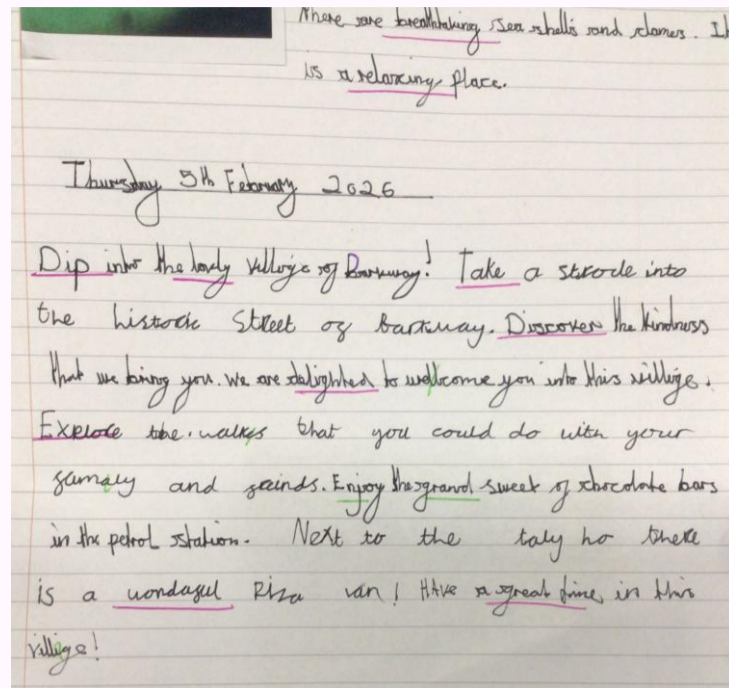 There are breathtaking sea shells and clames. It
is a relaxing place.
Thursday 5th February 2026
Dip into the lovely villige of Barkway! Take a strode into
the historic Street of barkway. Discover the kindness
that we bring you. We are delighted to wellcome you into this villige.
Explore the walks that you could do with your
famaly and fainds. Enjoy the grand sweet of chocolate bars
in the petrol station. Next to the taly ho there
is a wondaful Pizza van! HAve a great time in this
villige!